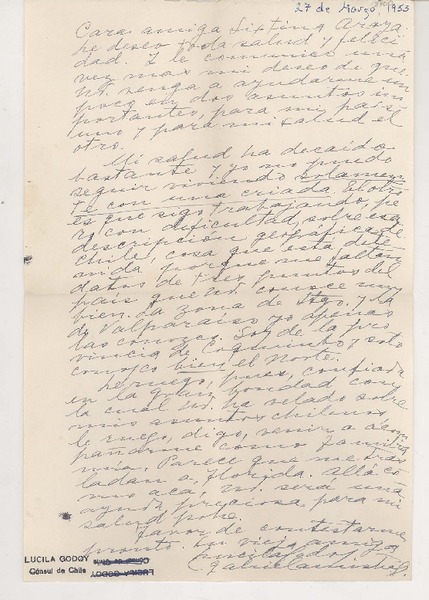 27 de Marzo 1953
Cara amiga Araya.
le deseo toda salud y felici
dad. I le comunico una
vez más mi deseo de que
Ud. venga a ayudarme un
poco en dos asuntos im
portantes, para mi país
uno y para mi salud el
otro.
Mi salud ha decaído
bastante y yo no puedo
seguir viviendo solamen
te con una criada.
es que sigo trabajando, pe
ro con dificultad, sobre esa
descripción geográfica de
Chile, cosa que está dete
nida porque me faltan
datos de tres puntos del
país que Ud. conoce muy
bien. La zona de Stgo. y la
de Valparaíso yo apenas
las conozco. Soy de la pro
vincia de Coquimbo y solo
conozco bien el Norte.
Le ruego, pues, confiada
en la gran bondad con
la cual Ud. ha velado sobre
mis asuntos chilenos
le ruego, digo, venir a acom
pañarme como familia
mía. Parece que me tras
ladan a Florida. Allá co
mo acá, Ud. será una
ayuda preciosa para mi
salud pobre.
Favor de contestarme
pronto. Su vieja amiga
Lucila Godoy
Gabriela Mistral
LUCILA GODOY
Cónsul de Chile
LUCILA GODOY
Cónsul de Chile